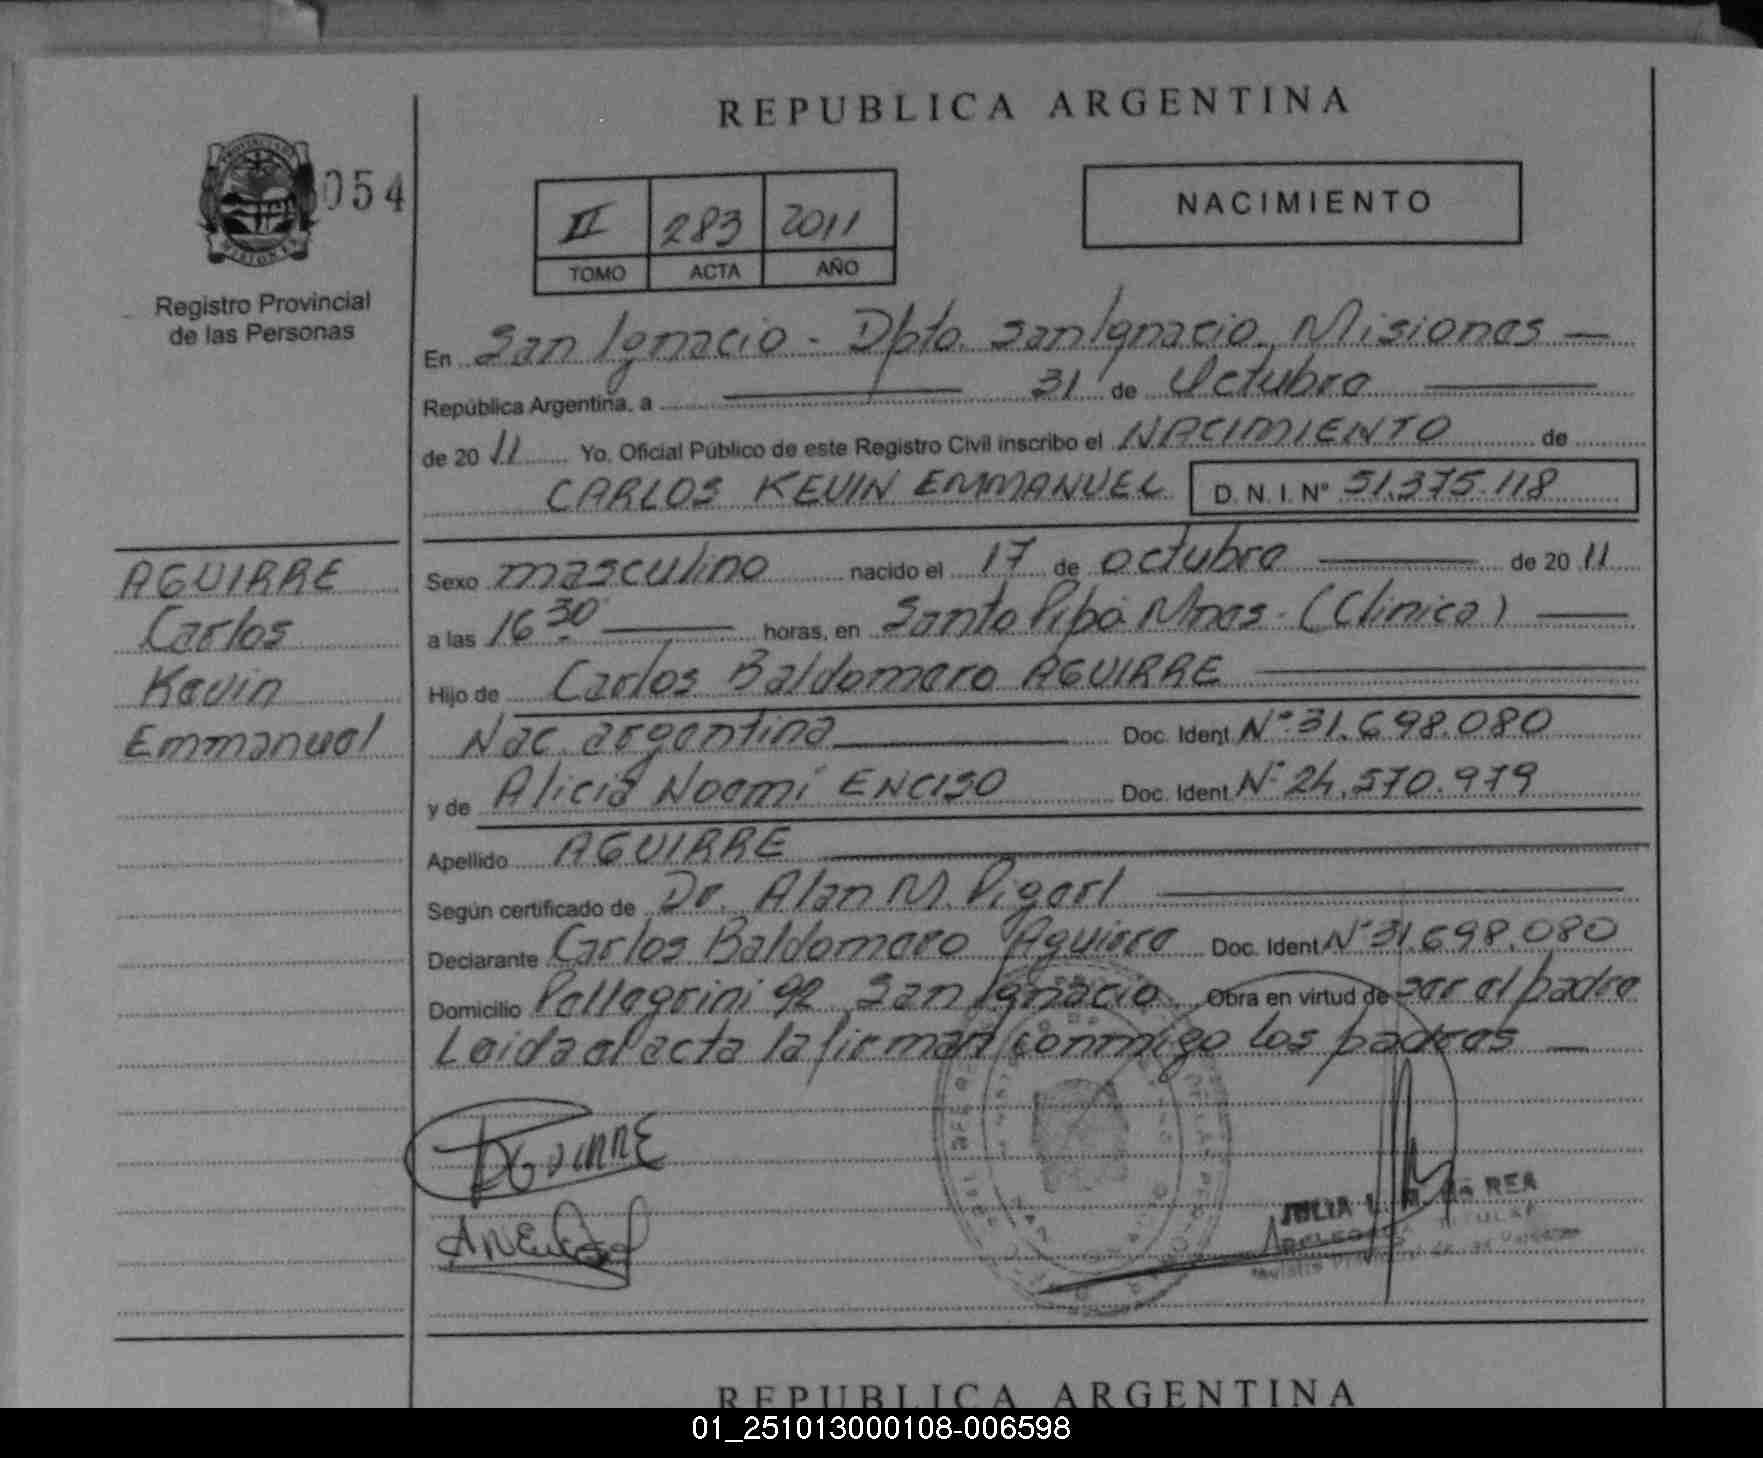 REPUBLICA ARGENTINA
054
II 283 2011
TOMO ACTA AÑO
NACIMIENTO
Registro Provincial
de las Personas
En San Ignacio - Dpto. San Ignacio Misiones —
República Argentina, a 31 de Octubre
de 2011 Yo, Oficial Público de este Registro Civil inscribo el NACIMIENTO de
CARLOS KEVIN EMMANUEL D. N. I. Nº 51.375.118
AGUIRRE
Carlos
Kevin
Emmanuel
Sexo masculino nacido el 17 de octubre de 2011
a las 16 30 horas, en Santo Pipó Mnes. (Clinica)
Hijo de Carlos Baldomero AGUIRRE
Nac. argentina Doc. Ident. Nº 31.698.080
y de Alicia Noemi ENCISO Doc. Ident. Nº 24.570.979
Apellido AGUIRRE
Según certificado de Dr. Alan M.
Declarante Carlos Baldomero Aguirre Doc. Ident. Nº 31.698.080
Domicilio Pellegrini 92 San Ignacio Obra en virtud de ser el padre
Leida el acta la firman conmigo los padres —
AGUIRRE
JULIA
TITULAR
REPUBLICA ARGENTINA
01_251013000108-006598